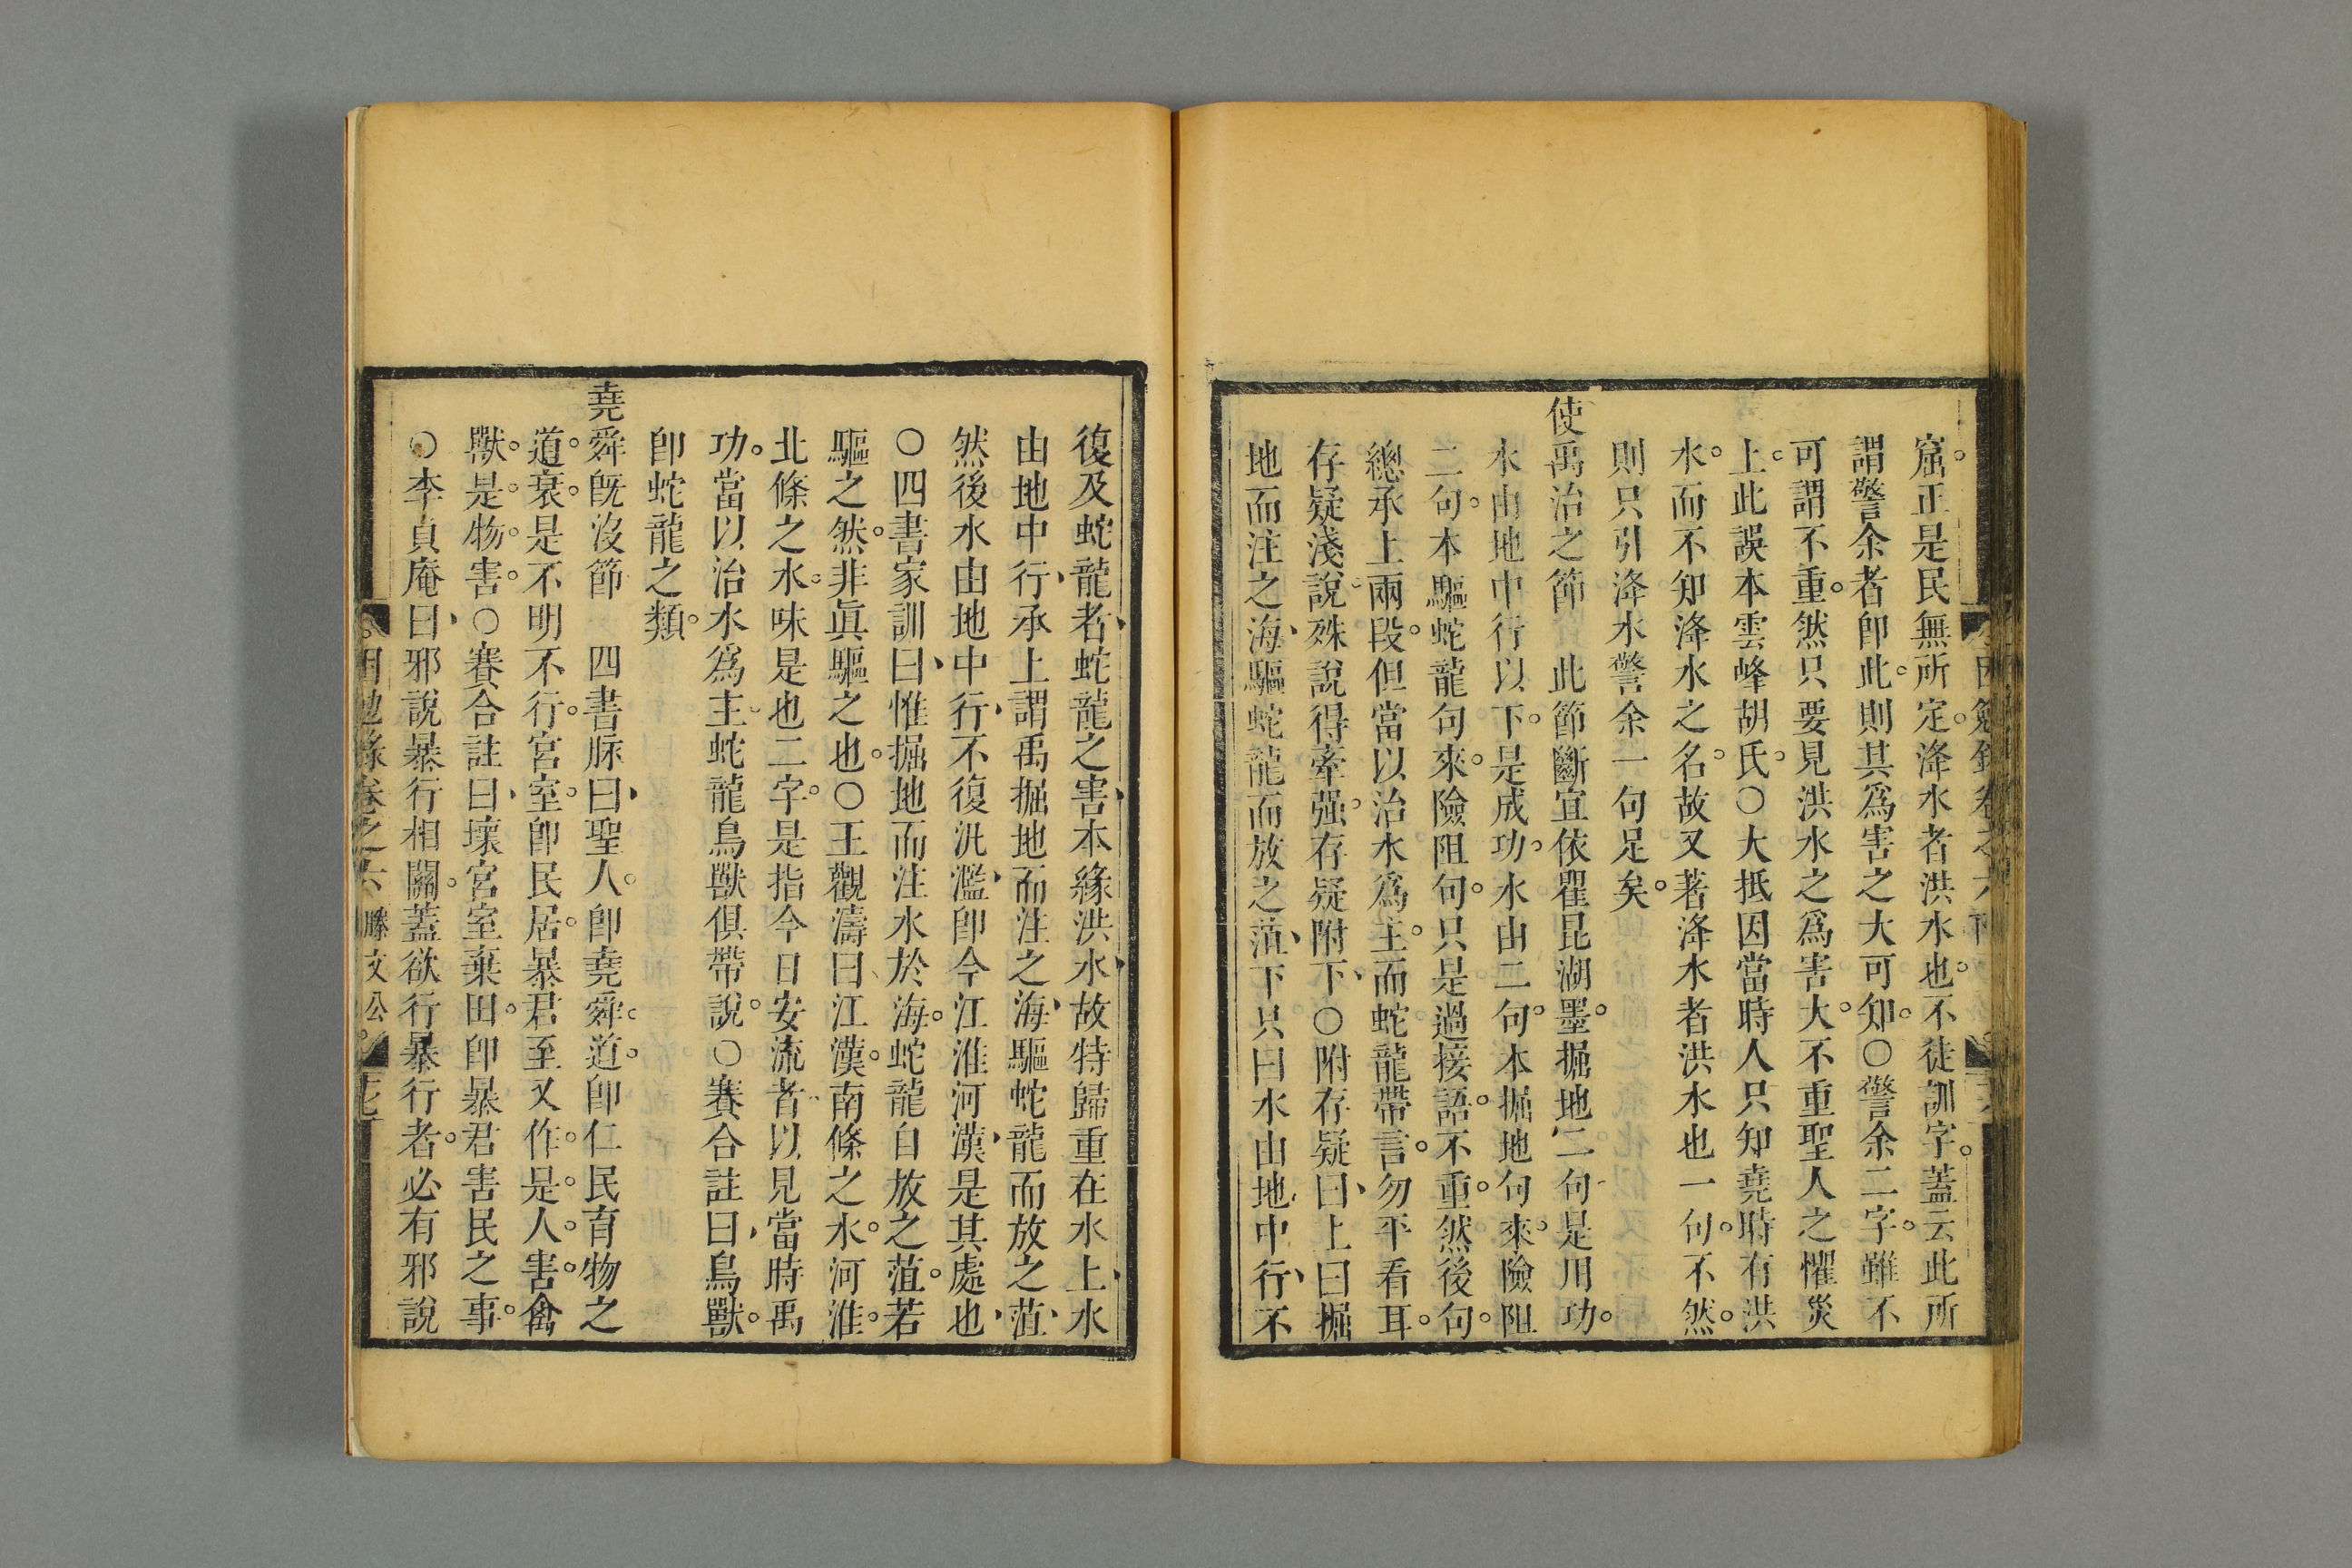 窟正是民無所定洚水者洪水也不徒訓字蓋云此所
謂警余者卽此則其爲害之大可知○警余二字雖不
可謂不重然只要見洪水之爲害大不重聖人之懼災
上此誤本雲峰胡氏○大抵因當時人只知堯時有洪
水而不知洚水之名故又著洚水者洪水也一句不然
則只引洚水警余一句足矣
使禹治之節 此節斷宜依瞿昆湖墨掘地二句是用功
水由地中行以下是成功水由二句本掘地句來險阻
二句本驅蛇龍句來險阻句只是過接語不重然後句
總承上兩段但當以治水爲主而蛇龍帶言勿平看耳
存疑淺說殊說得牽强存疑附下○附存疑曰上曰掘
地而注之海驅蛇龍而放之菹下只曰水由地中行不
復及蛇龍者蛇龍之害本緣洪水故特歸重在水上水
由地中行承上謂禹掘地而注之海驅蛇龍而放之菹
然後水由地中行不復汎濫卽今江淮河漢是其處也
○四書家訓曰惟掘地而注水於海蛇龍自放之菹若
驅之然非眞驅之也○王觀濤曰江漢南條之水河淮
北條之水味是也二字是指今日安流者以見當時禹
功當以治水爲主蛇龍鳥獸俱帶說○賽合註曰鳥獸
卽蛇龍之類
堯舜旣沒節 四書脉曰聖人卽堯舜道卽仁民育物之
道衰是不明不行宮室卽民居暴君至又作是人害禽
獸是物害○賽合註曰壞宮室棄田卽暴君害民之事
○李貞庵曰邪說暴行相關蓋欲行暴行者必有邪說
困勉錄卷之六 滕文公